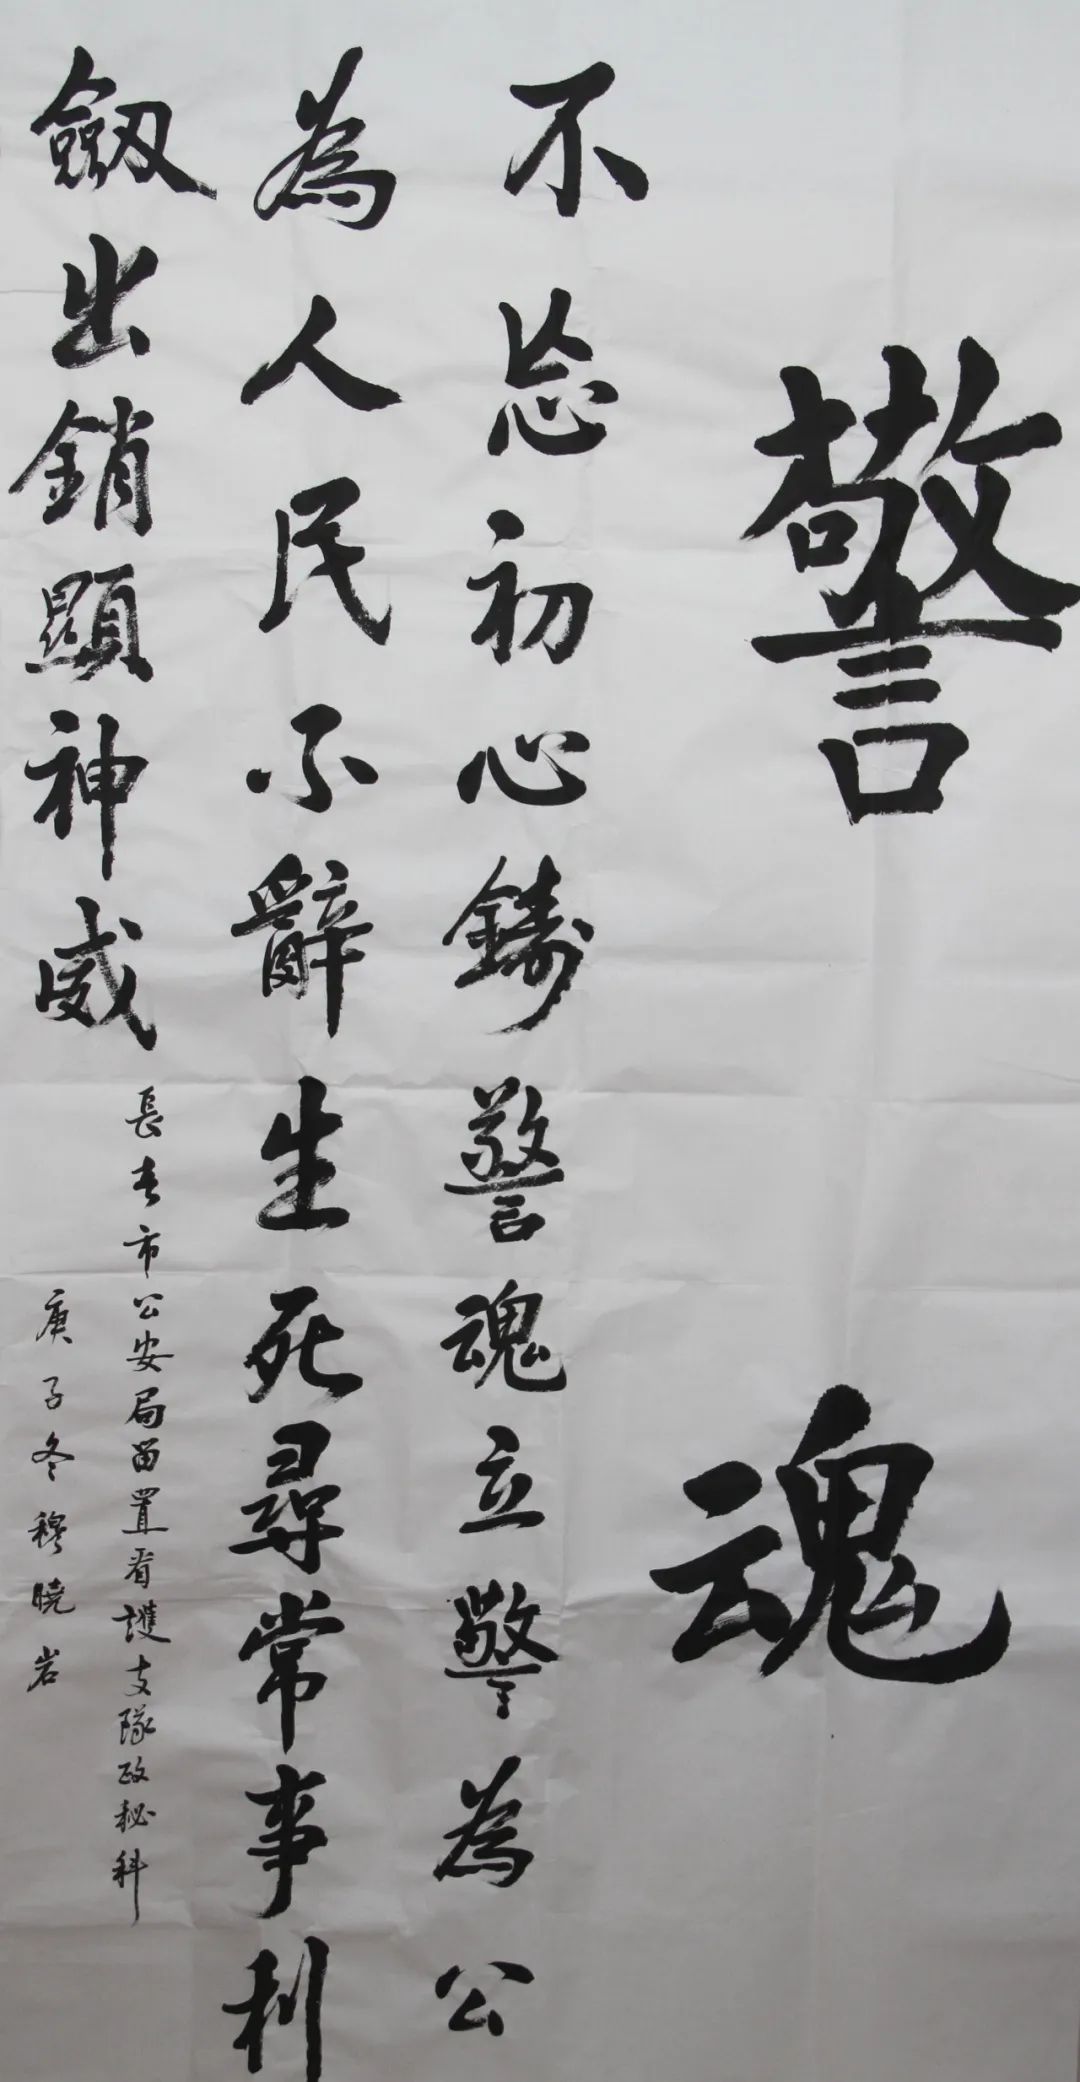 警魂
不忘初心鑄警魂立警為公
為人民不辭生死尋常事利
劔出銷顯神威
長春市公安局留置看護支隊政秘科
庚子冬穆曉岩